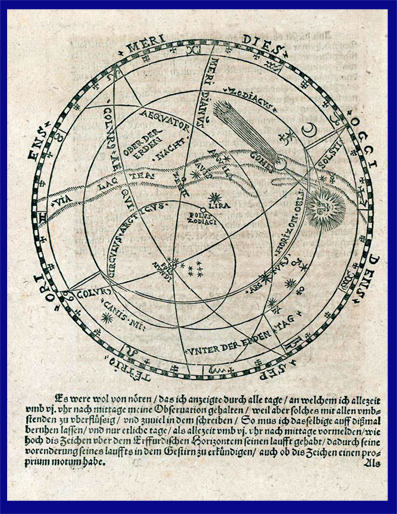 MERI DIES
OCCI DENS
SEP TETRIO
ORI ENS
MERI DIANVS
ZODIACVS
COLVRVS AE QVI
AEQVATOR
OBER DER ERDEN
NACHT
VIA LAC THA
COME
COLSTI
LIRA
POLVS ZODIACI
CIRCVLVS ARCTICVS
HORIZON
COLVRI
CANIS MI
VNTER DER ERDEN
Es were wol von nöten / das ich anzeigte durch alle tage / an welchem ich allezeit
vmb vj. vhr nach mittage meine Observation gehalten / weil aber solches mit allen vmb-
stenden zu vberflüssig / vnd zuuiel in dem schreiben / So mus ich dasselbige auff dißmal
beruhen lassen / vnd nur etliche tage / als allezeit vmb vj. vhr nach mittage vormelden / wie
hoch dis Zeichen vber dem Erffurdischen Horizontem seinen laufft gehabt / dadurch seine
vorenderung seines lauffts in dem Gestirn zu erkündigen / auch ob dis Zeichen einen pro-
prium motum habe.
Als